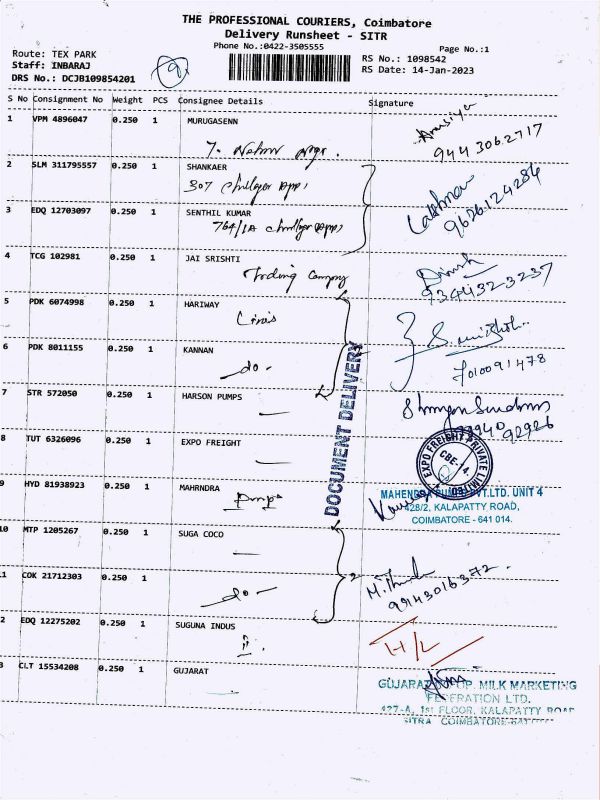 THE PROFESSIONAL COURIERS, Coimbatore
Delivery Runsheet - SITR
Phone No.:0422-3505555
Page No.:1
Route: TEX PARK
RS No.: 1098542
Staff: INBARAJ
RS Date: 14-Jan-2023
DRS No.: DCJB109854201
9
S No Consignment No Weight PCS Consignee Details Signature
1 VPM 4896047 0.250 1 MURUGASENN
9443062717
2 SLM 311795557 0.250 1 SHANKAER
307
Lakshman
9626124284
3 EDQ 12703097 0.250 1 SENTHIL KUMAR
764/1A
4 TCG 102981 0.250 1 JAI SRISHTI
Trading Company
Dinesh
9344323237
5 PDK 6074998 0.250 1 HARIWAY
6 PDK 8011155 0.250 1 KANNAN
- do -
7010091478
7 STR 572050 0.250 1 HARSON PUMPS
92926
8 TUT 6326096 0.250 1 EXPO FREIGHT
EXPO FREIGHT PRIVATE LIMITED
CBE-4
DOCUMENT DELIVERY
9 HYD 81938923 0.250 1 MAHRNDRA
Pumps
MAHENDRA PUMPS PVT.LTD. UNIT 4
428/2, KALAPATTY ROAD,
COIMBATORE - 641 014.
10 MTP 1205267 0.250 1 SUGA COCO
2
9943016372
1 COK 21712303 0.250 1
- do -
2 EDQ 12275202 0.250 1 SUGUNA INDUS
H/L
3 CLT 15534208 0.250 1 GUJARAT
GUJARAT CO-OP. MILK MARKETING
FEDERATION LTD.
427-A, 1st FLOOR, KALAPATTY ROAD
SITRA COIMBATORE